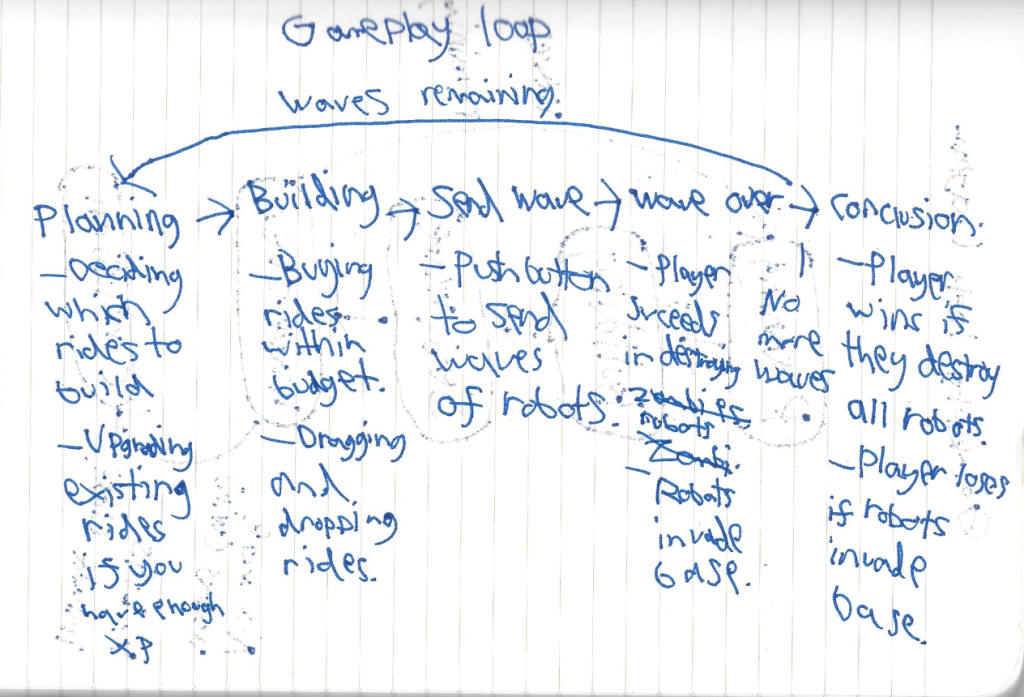 Gameplay loop
waves remaining.
Planning → Building → Send wave → wave over → Conclusion.
- Deciding
which
rides to
build
- Upgrading
existing
rides
if you
have enough
XP
- Buying
rides
within
budget.
- Dragging
and
dropping
rides.
- Push button
to send
waves
of robots.
- Player
suceeds
in destroying
zombies
robots
Zombi
- Robots
invade
base.
No
more
waves
- Player
wins if
they destroy
all robots.
- Player loses
if robots
invade
base.